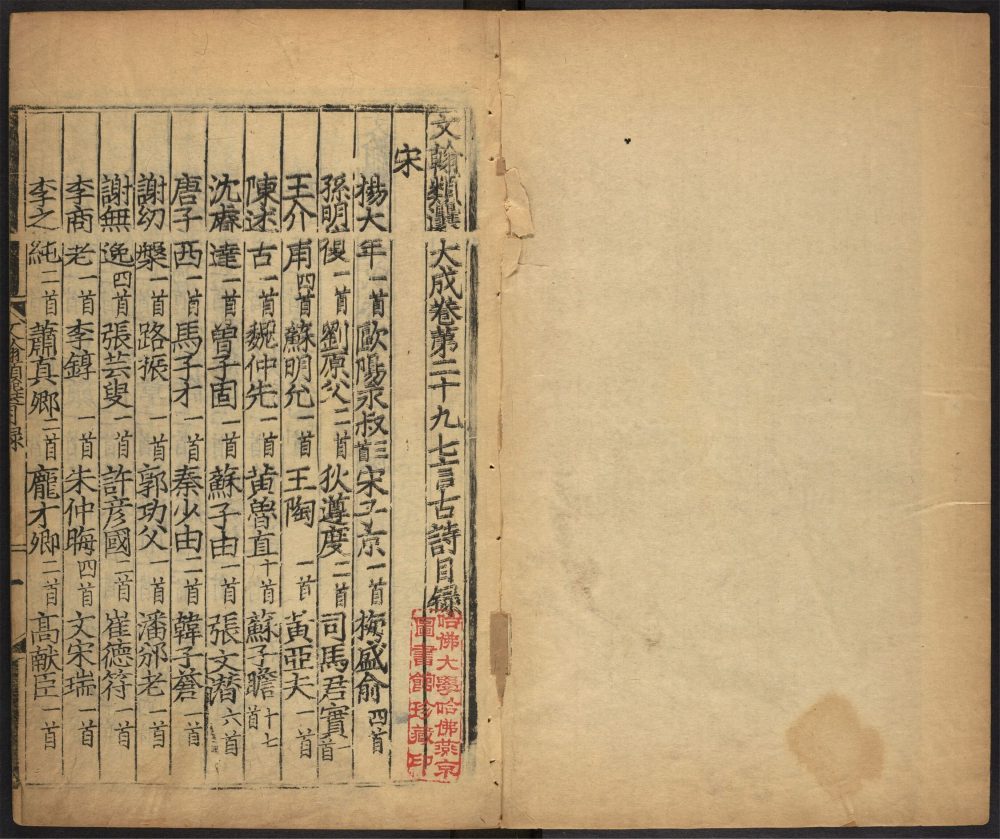 文翰類選大成卷第二十九七言古詩目錄
宋
楊大年一首 歐陽永叔三首 宋子京一首 梅盛俞四首
孫明復一首 劉原父二首 狄遵度二首 司馬君實一首
王介甫四首 蘇明允一首 王陶一首 黃亞夫一首
陳述古一首 魏仲先一首 黃魯直十首 蘇子瞻十七首
沈睿達一首 曾子固一首 蘇子由一首 張文潛六首
唐子西一首 馬子才一首 秦少由二首 韓子蒼一首
謝幼槃一首 路振一首 郭功父一首 潘邠老一首
謝無逸四首 張芸叟一首 許彥國二首 崔德符一首
李商老一首 李錞一首 朱仲晦四首 文宋瑞一首
李之純二首 蕭真卿二首 龐才卿二首 高献臣一首
文翰類選目録
一
哈佛大學哈佛燕京
圖書館珍藏印